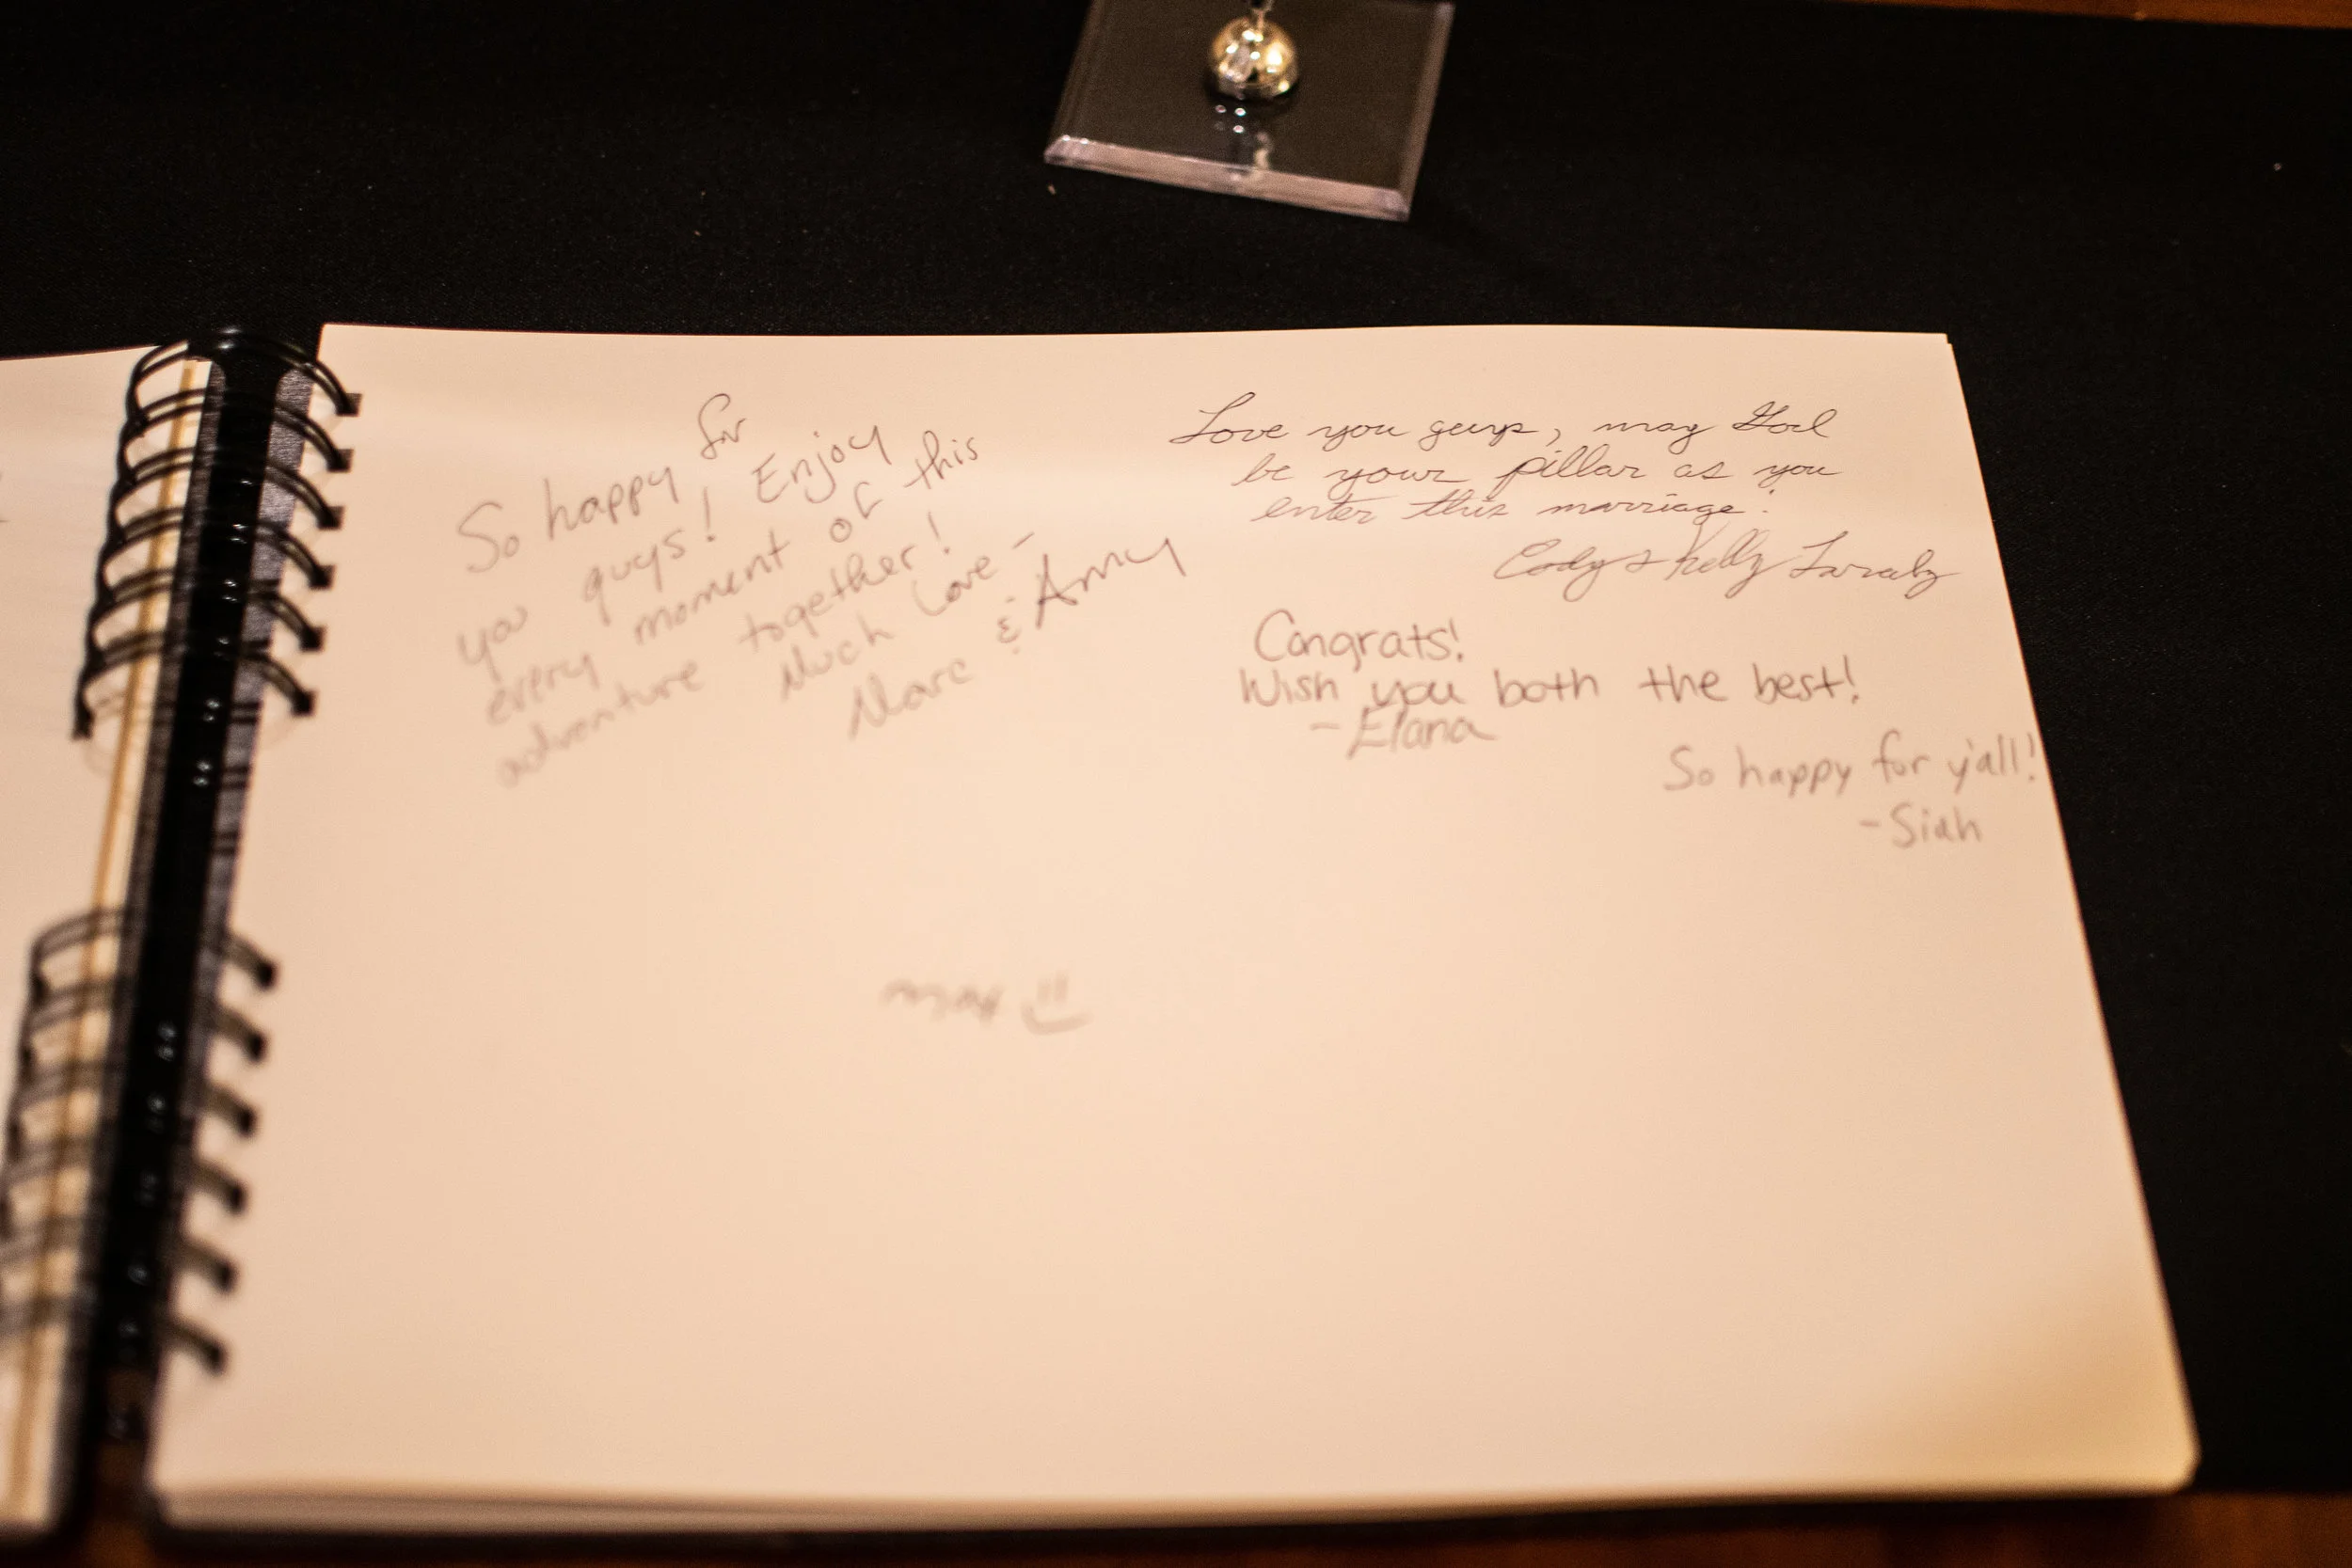 So happy for
you guys! Enjoy
every moment of this
adventure together!
Much Love -
Marc & Amy
Love you guys, may God
be your pillar as you
enter this marriage.
Cody & Kelly
Congrats!
Wish you both the best!
- Elana
So happy for y'all!
- Siah